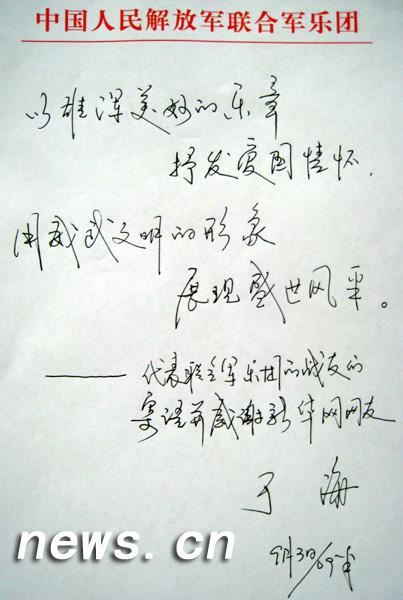 中国人民解放军联合军乐团
以雄浑美妙的乐章
抒发爱国情怀,
用威武文明的形象
展现盛世风采。
——代表联合军乐团的战友的
寄语并感谢新华网网友
于海
9月3日/09年
news.cn